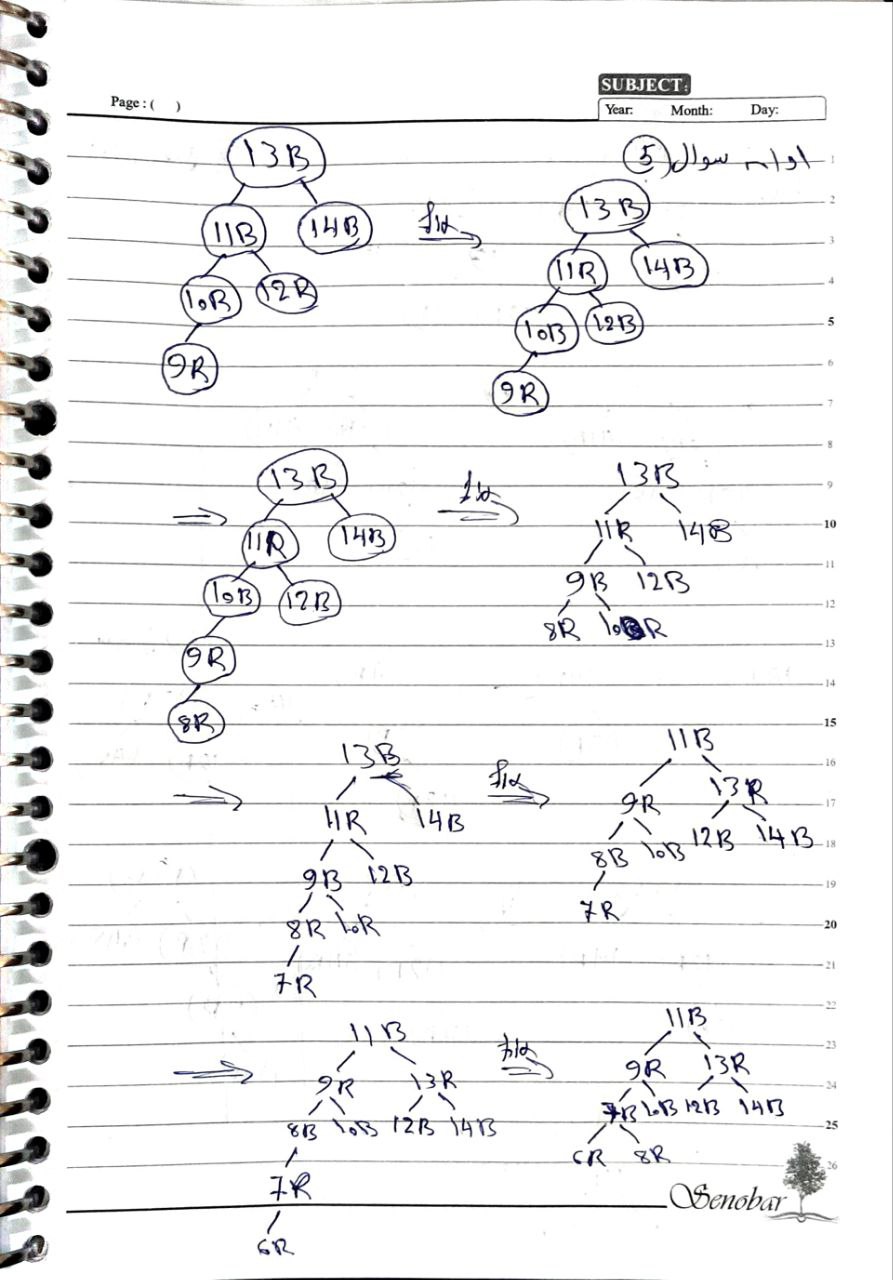 SUBJECT:
Page : ( )
Year: Month: Day:
ادامه سوال 5
13B
11B 14B
10B 12R
9R
fix
13B
11R 14B
10B 12B
9R
13B
11R 14B
10B 12B
9R
8R
fix
13B
11R 14B
9B 12B
8R 10R
13B
11R 14B
9B 12B
8R 10R
7R
fix
11B
9R 13R
8B 10B 12B 14B
7R
11B
9R 13R
8B 10B 12B 14B
7R
6R
fix
11B
9R 13R
7B 10B 12B 14B
6R 8R
1
2
3
4
5
6
7
8
9
10
11
12
13
14
15
16
17
18
19
20
21
22
23
24
25
26
Senobar